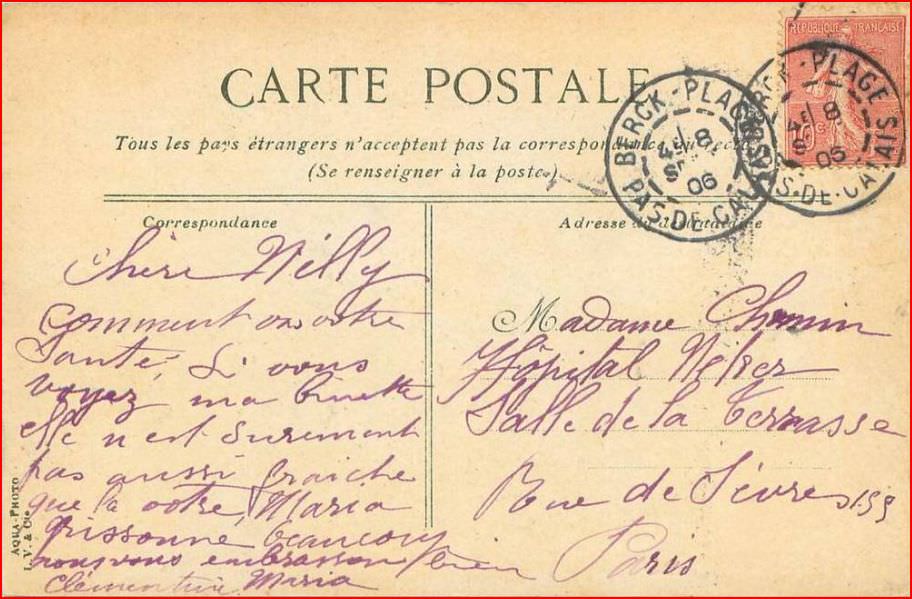 CARTE POSTALE
Tous les pays étrangers n'acceptent pas la correspondance au recto
(Se renseigner à la poste)
Correspondance
Chère Nelly
comment va votre
santé, Si vous
voyez ma binette
elle n'est surement
pas aussi fraiche
que la votre, Maria
frissonne beaucoup
nous vous embrassons bien
Clémentine Maria
AQUA-PHOTO
L. V. & Cie
Adresse du destinataire
Madame Chemin
Hôpital Neker
Salle de la Terrasse
Rue de Sèvres
Paris
REPUBLIQUE FRANÇAISE
BERCK-PLAGE
8
06
PAS-DE-CALAIS
BERCK-PLAGE
8
06
PAS-DE-CALAIS